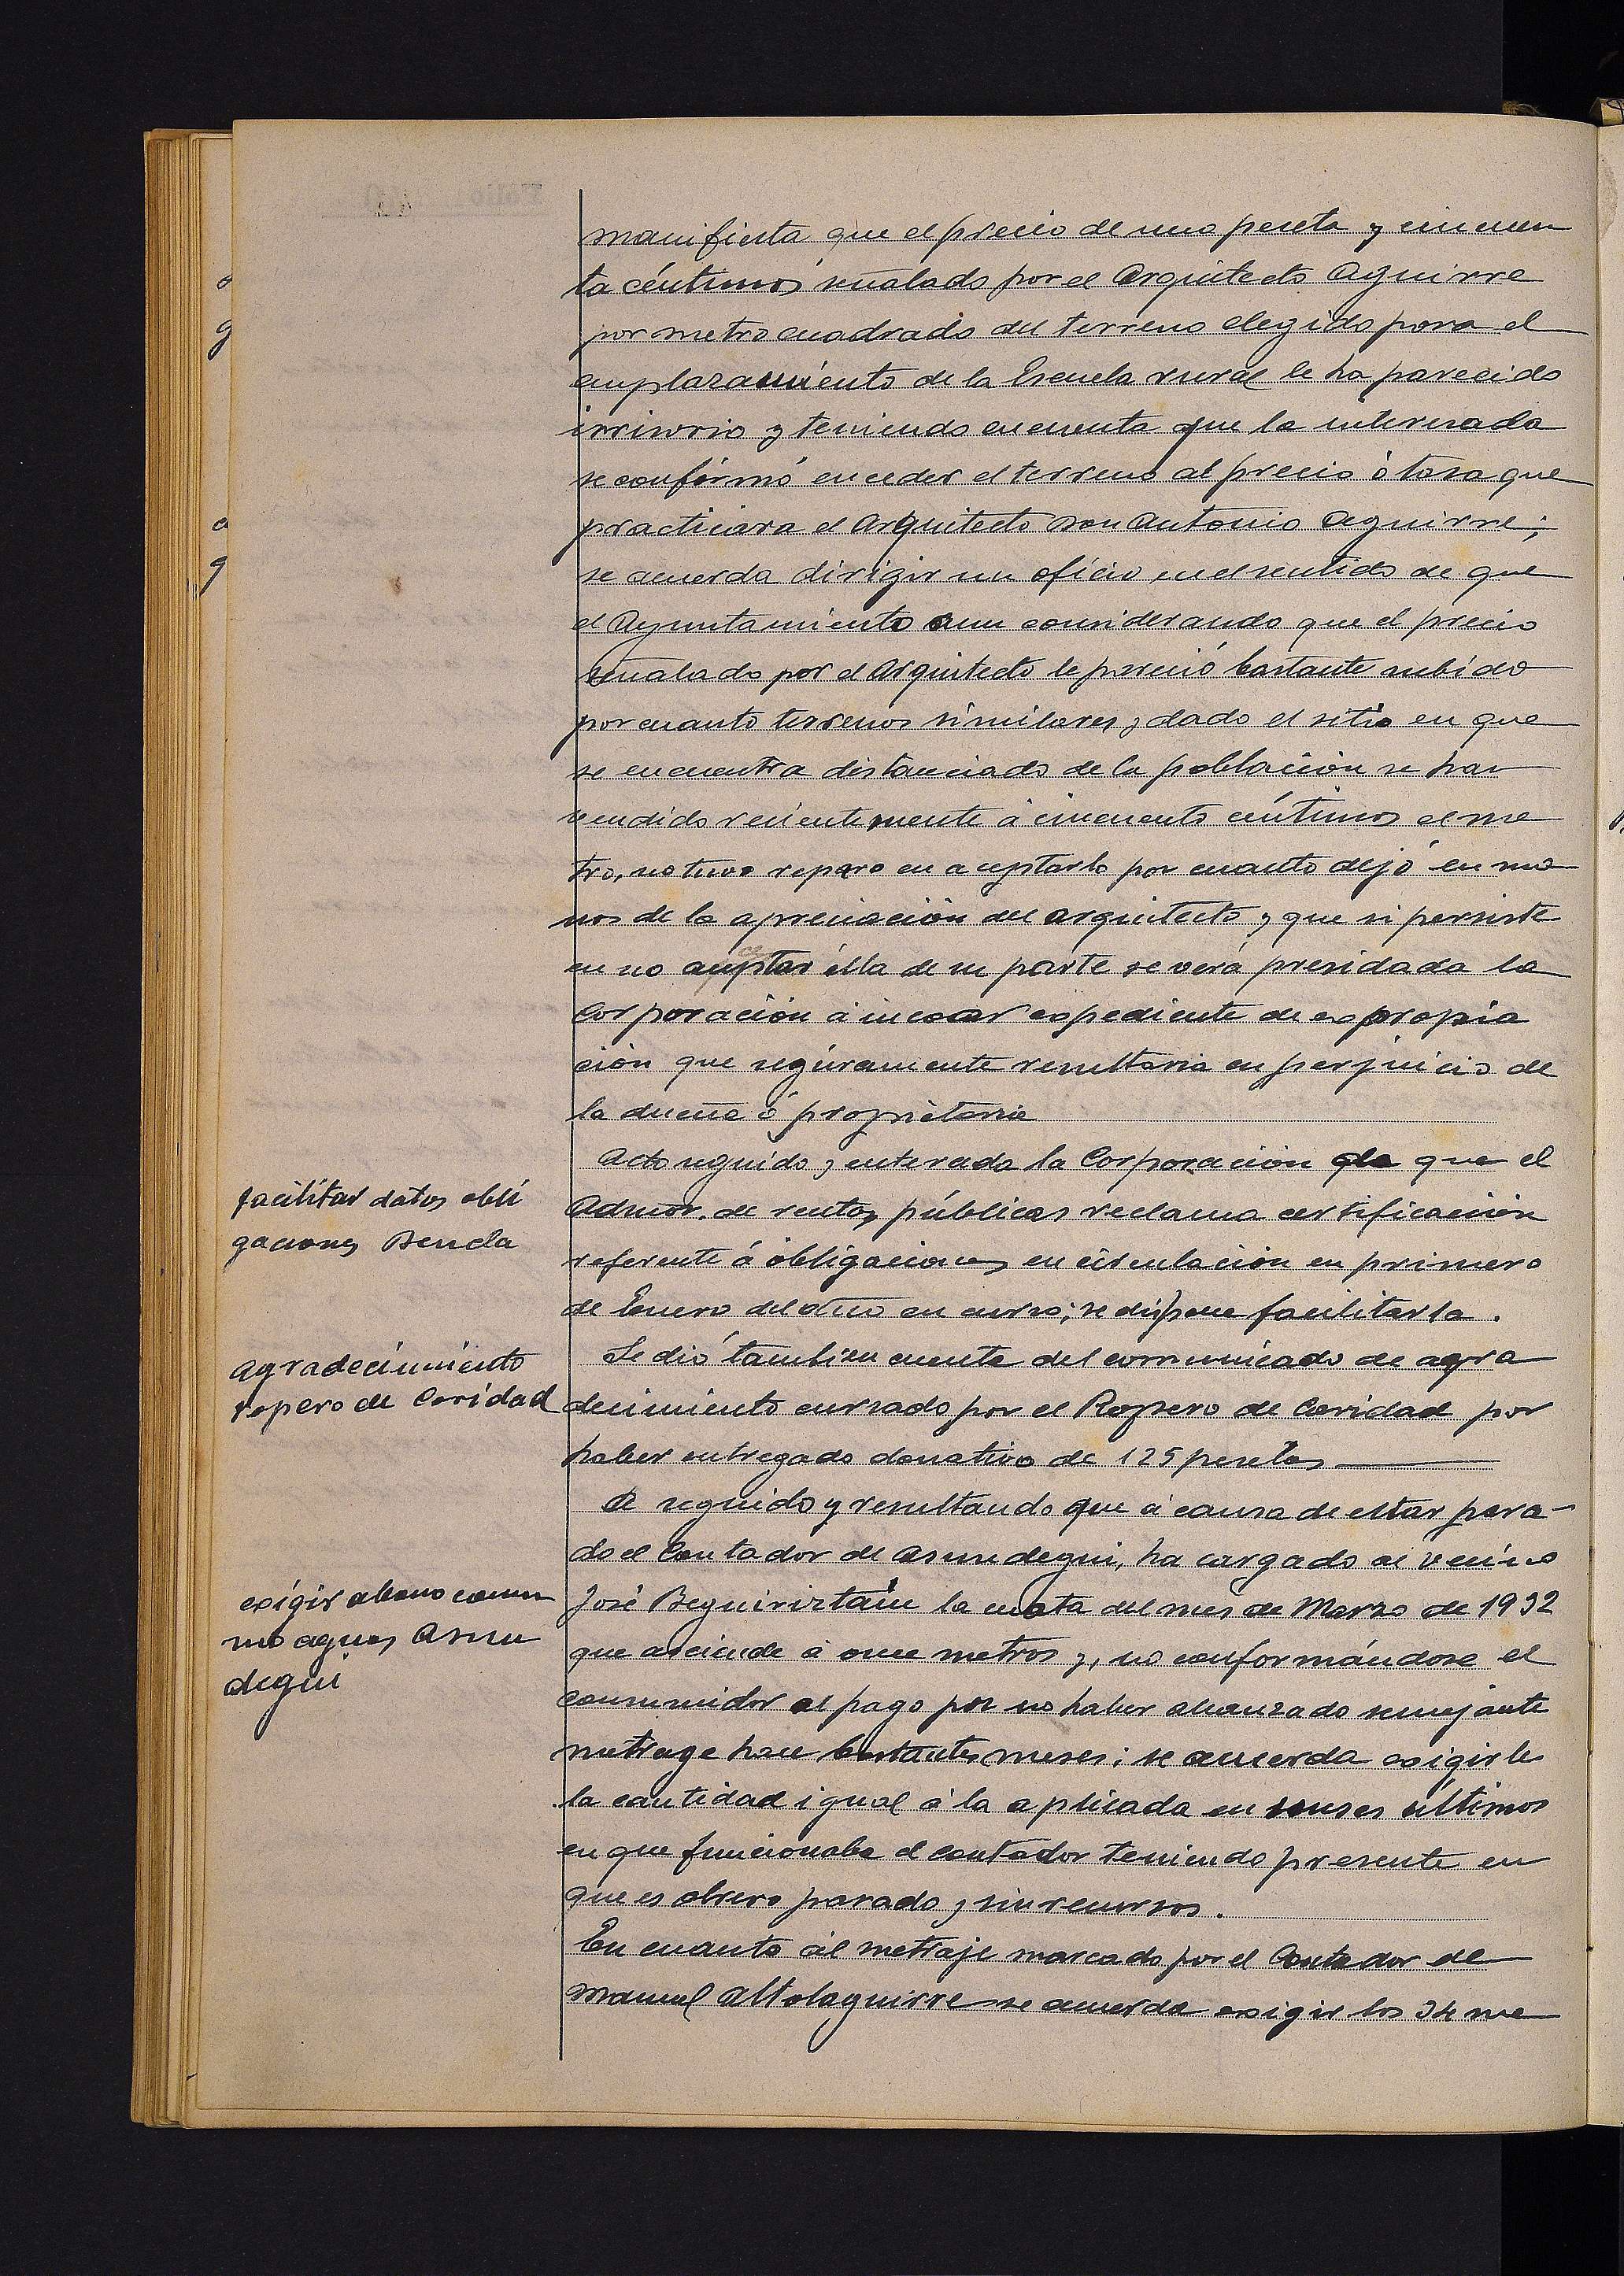 manifiesta que el precio de una peseta y cincuen
ta céntimos señalado por el Arquitecto Aguirre
por metro cuadrado del terreno elegido para el
emplazamiento de la Escuela rural le ha parecido
irrisorio y teniendo en cuenta que la interesada
se confórmó en ceder el terreno al precio ó tasa que
practicara el Arquitecto Don Antonio Aguirre;
se acuerda dirigir un oficio en el sentido de que
el Ayuntamiento aun considerando que el precio
señalado por el Arquitecto le pareció bastante subido
por cuanto terrenos similares y dado el sitio en que
se encuentra distanciado de la población se han
vendido recientemente á cincuenta céntimos el me
tro, no tuvo reparo en aceptarlo por cuanto dejó en ma
nos de la apreciación del arquitecto y que si persiste
en no aceptar élla de su parte se verá presidada la
Corporación á incoar espediente de expropia
ción que seguramente resultaria en perjuicio de
la dueña ó propietaria
Acto seguido y enterada la Corporación de que el
Admor. de rentas públicas reclama certificación
referente á obligaciones en circulación en primero
de Enero del año en curso; se dispone facilitarla.
facilitar datos obli
gaciones Deuda
Se dió tambien cuenta del comunicado de agra
decimiento cursado por el Ropero de Caridad por
haber entregado donativo de 125 pesetas
agradecimiento
ropero de Caridad
De seguido y resultando que á causa de estar para-
do el Contador de Asundegui, ha cargado al vecino
José Beguiriztain la cuota del mes de Marzo de 1932
que asciende á once metros y, no conformándose el
consumidor al pago por no haber alcanzado semejante
metrage hace bastantes meses; se acuerda exigirle
la cantidad igual á la aplicada en meses últimos
en que funcionaba el contador teniendo presente en
que es obrero parado y sin recursos.
exigir abono consu
mo aguas Asun
degui
En cuanto al metraje marcado por el Contador de
Manuel Altolaguirre se acuerda exigir los 34 me